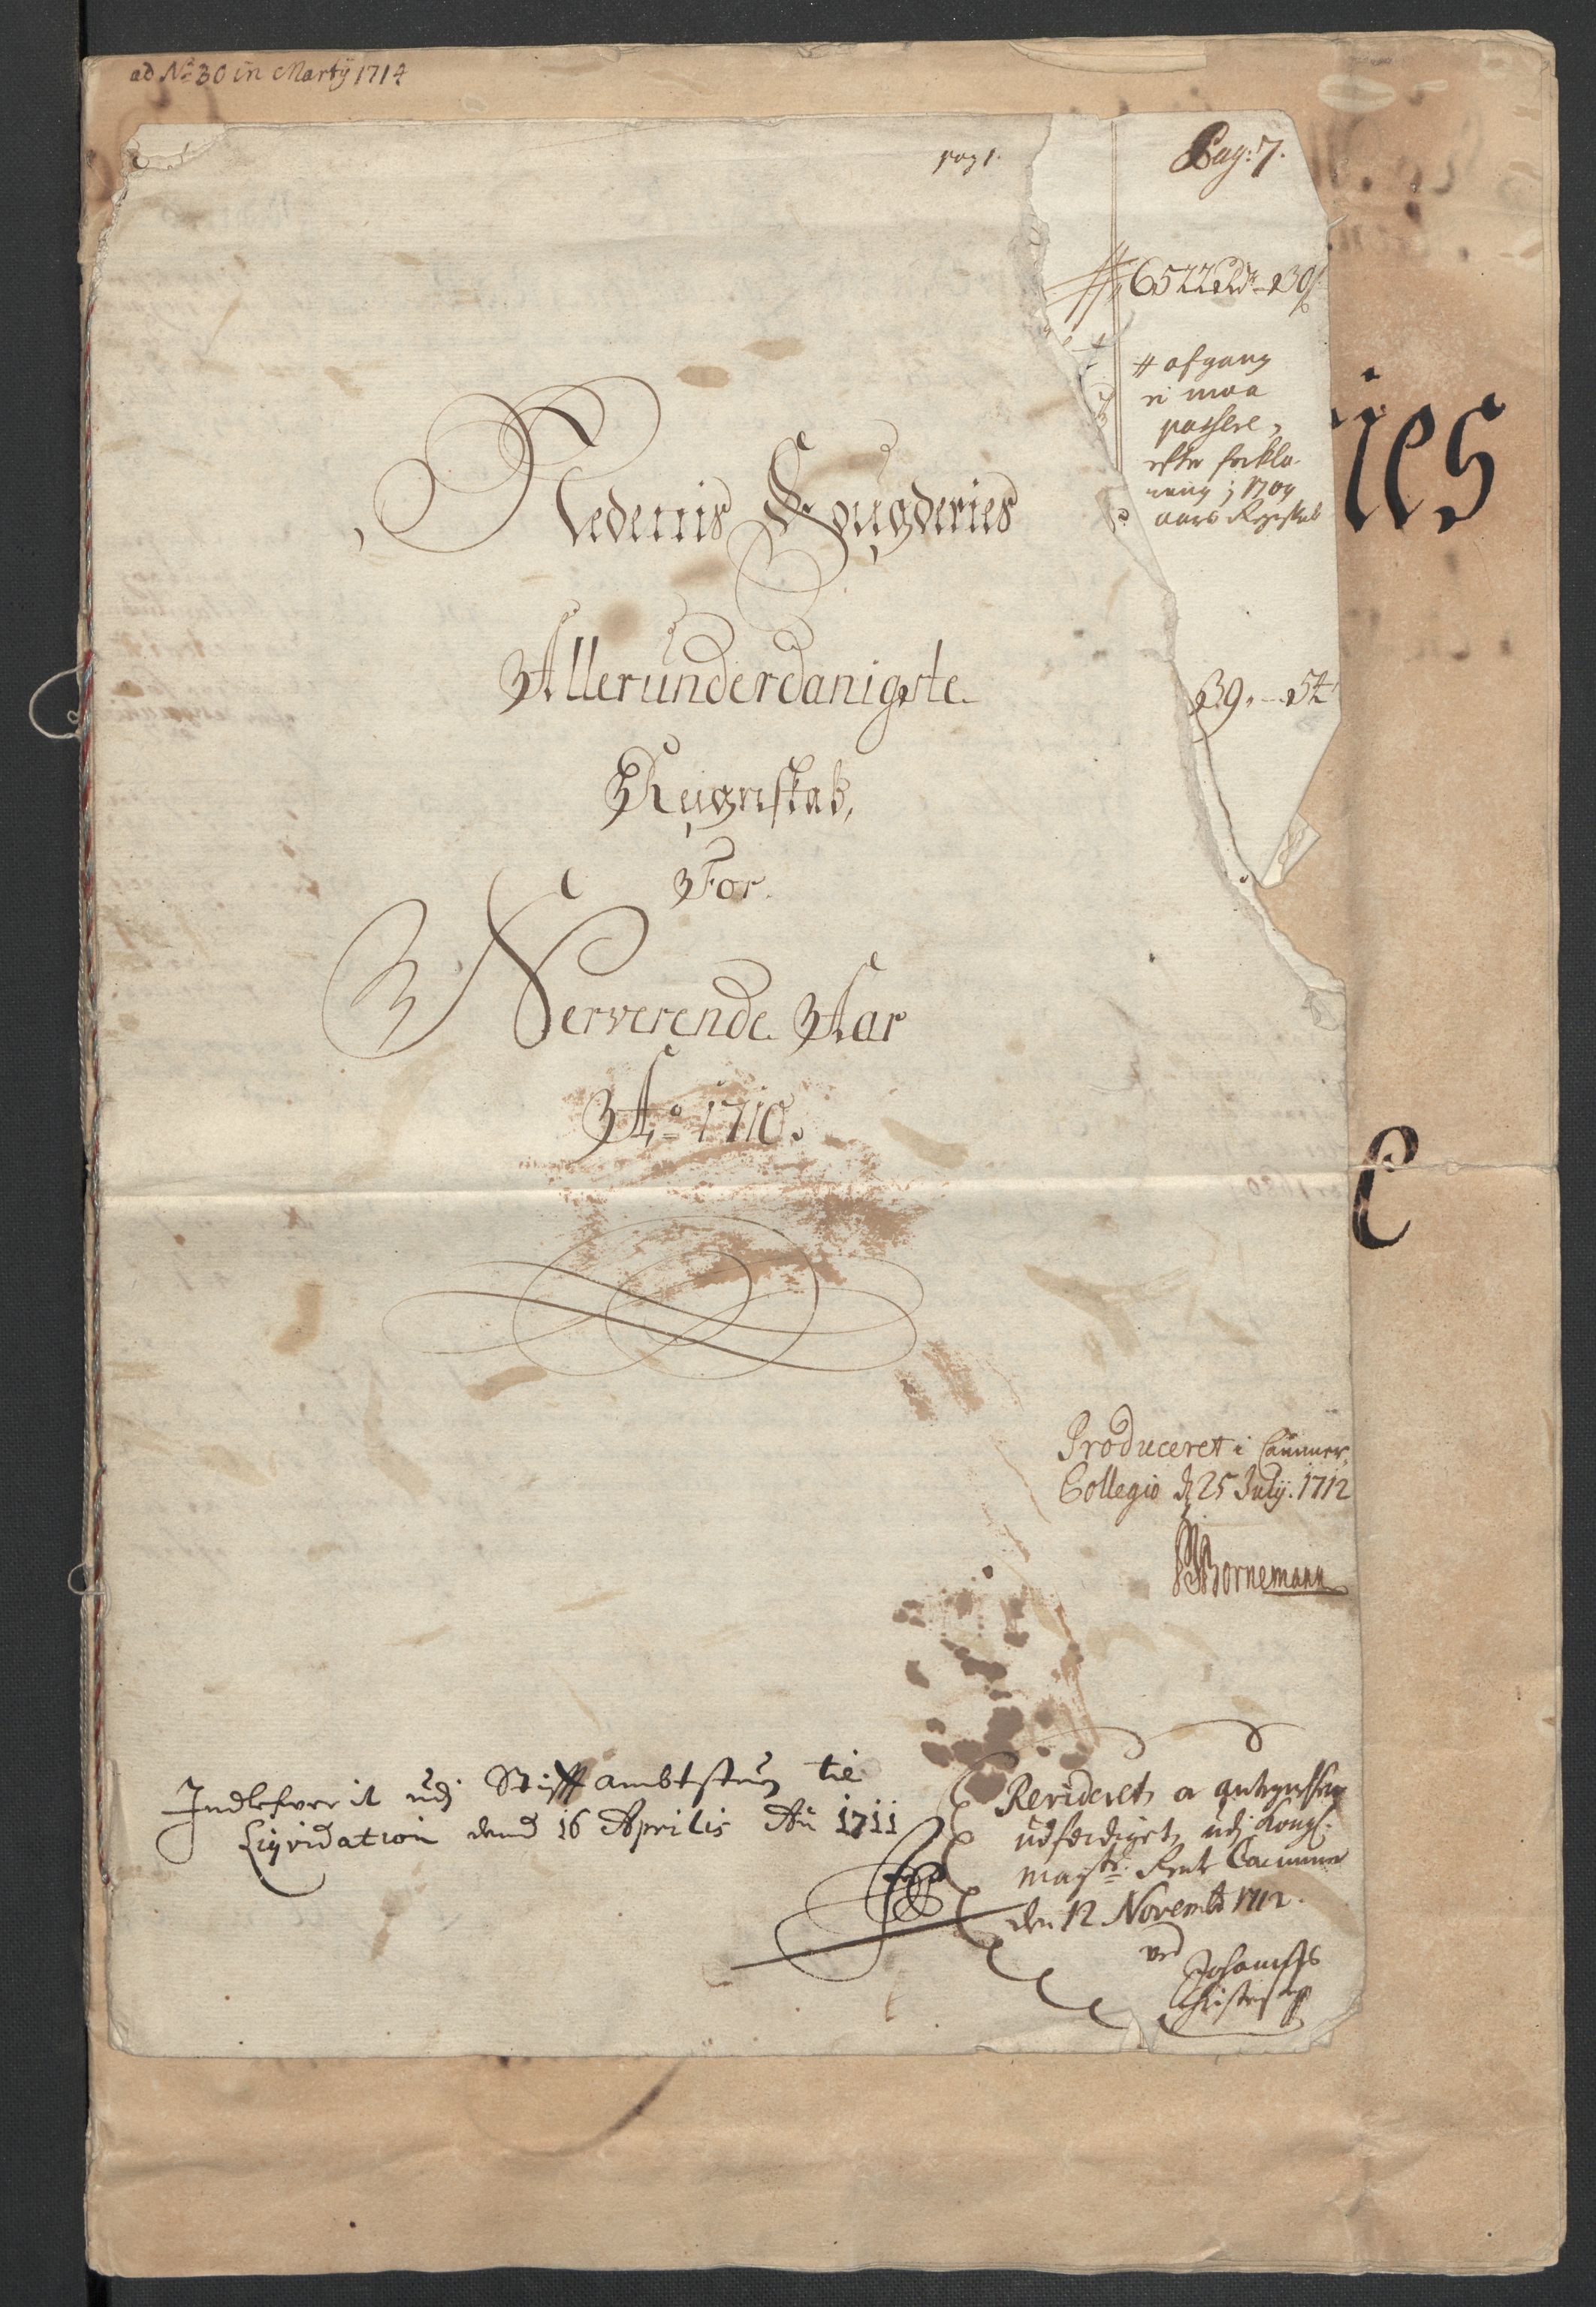 ad No 30 in Martÿ 1714
pag 1.
Pag: 7.
6522 Rdr 30
# afgang
ei maa
passere,
efter forkla-
ring i 1709
aars Regnskab
39. 54
Nedenis Fougderies
Allerunderdanigste
Regnskab,
For
Nerverende Aar
Ao 1710.
ies
e
Produceret i Cammer
Collegio d 25 Julÿ. 1712
Bornemann
Indlefverit udj Stiftambtstuen til
Liqvidation dend 16 Aprilis An 1711
Revideret,
udferdiget, udj Kongl:
Maysts Rente Cammer
den 12 Novemb 1712.
ved